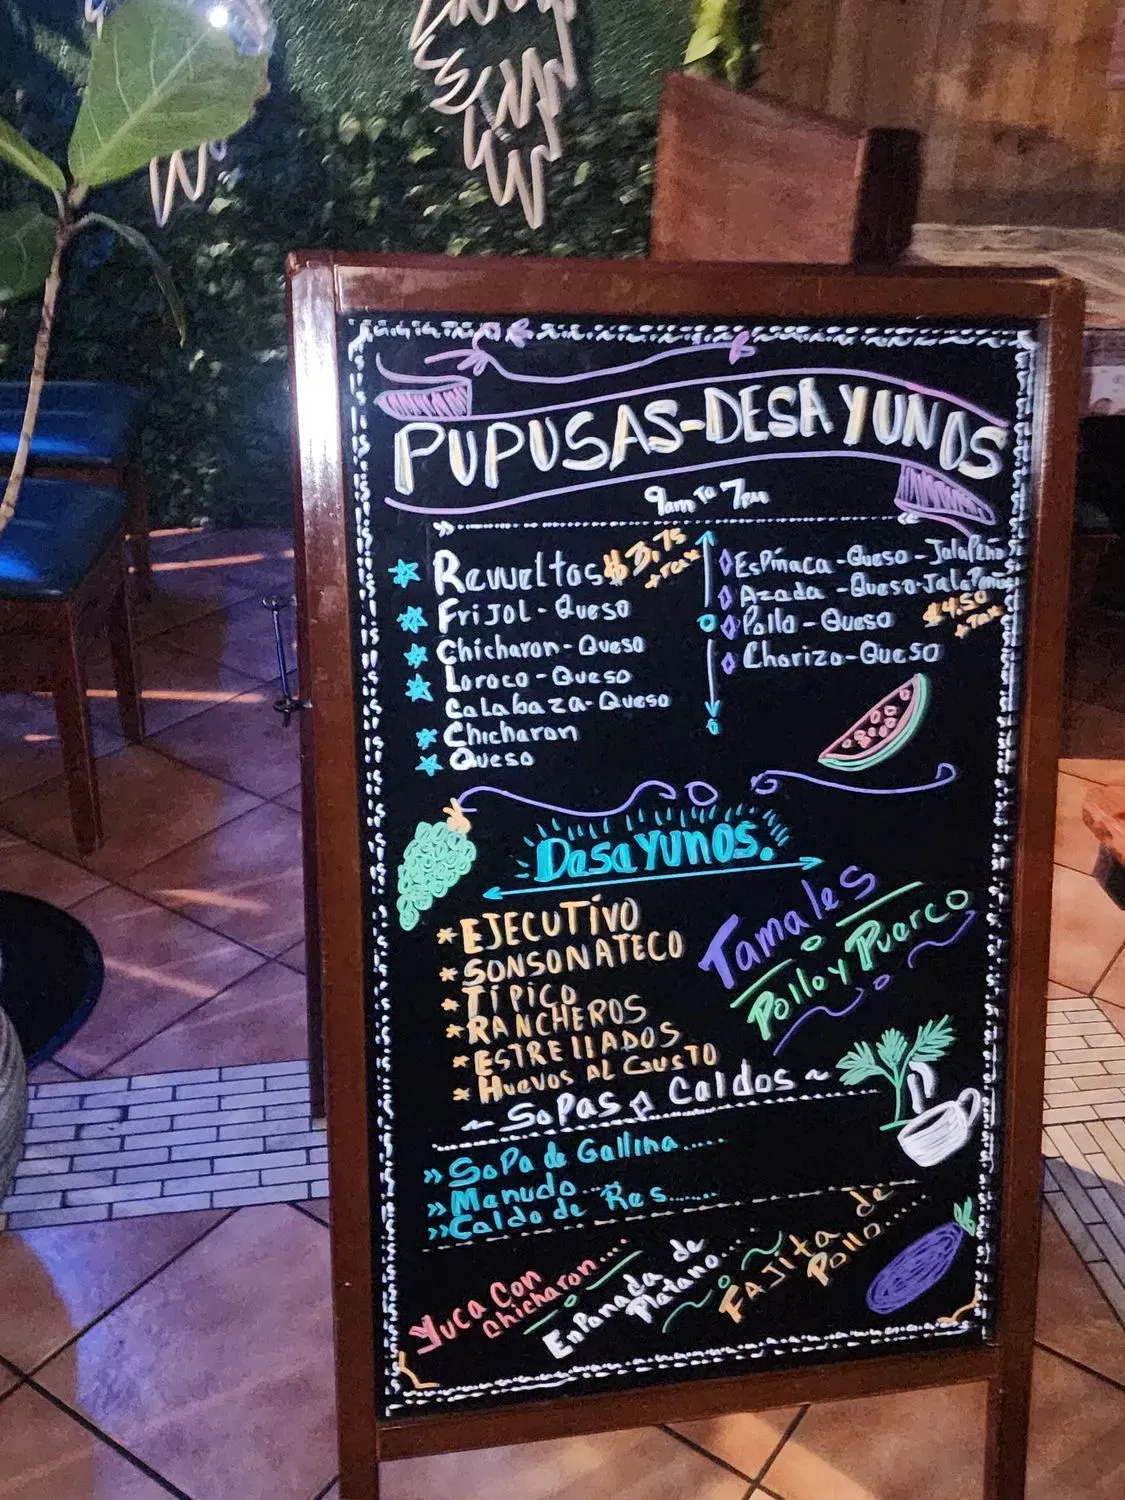 PUPUSAS-DESAYUNOS
9am To 7pm
Revueltas $3,75
+Tax
Frijol-Queso
Chicharon-Queso
Loroco-Queso
Calabaza-Queso
Chicharon
Queso
Espinaca-Queso-Jalapeño
Azada-Queso-Jalapeño
$4.50
+Tax
Pollo-Queso
Chorizo-Queso
DesaYUNOS.
*EJECUTIVO
*SONSONATECO
*TíPICO
*RANCHEROS
*ESTREllADOS
*Huevos AL GUSTO
Tamales
Pollo y Puerco
~SoPas y Caldos~
»SoPa de Gallina.....
»Menudo
»Caldo de Res......
Yuca Con
chicharon....
EnPanada de
Platano....
FAJita de
Pollo.....